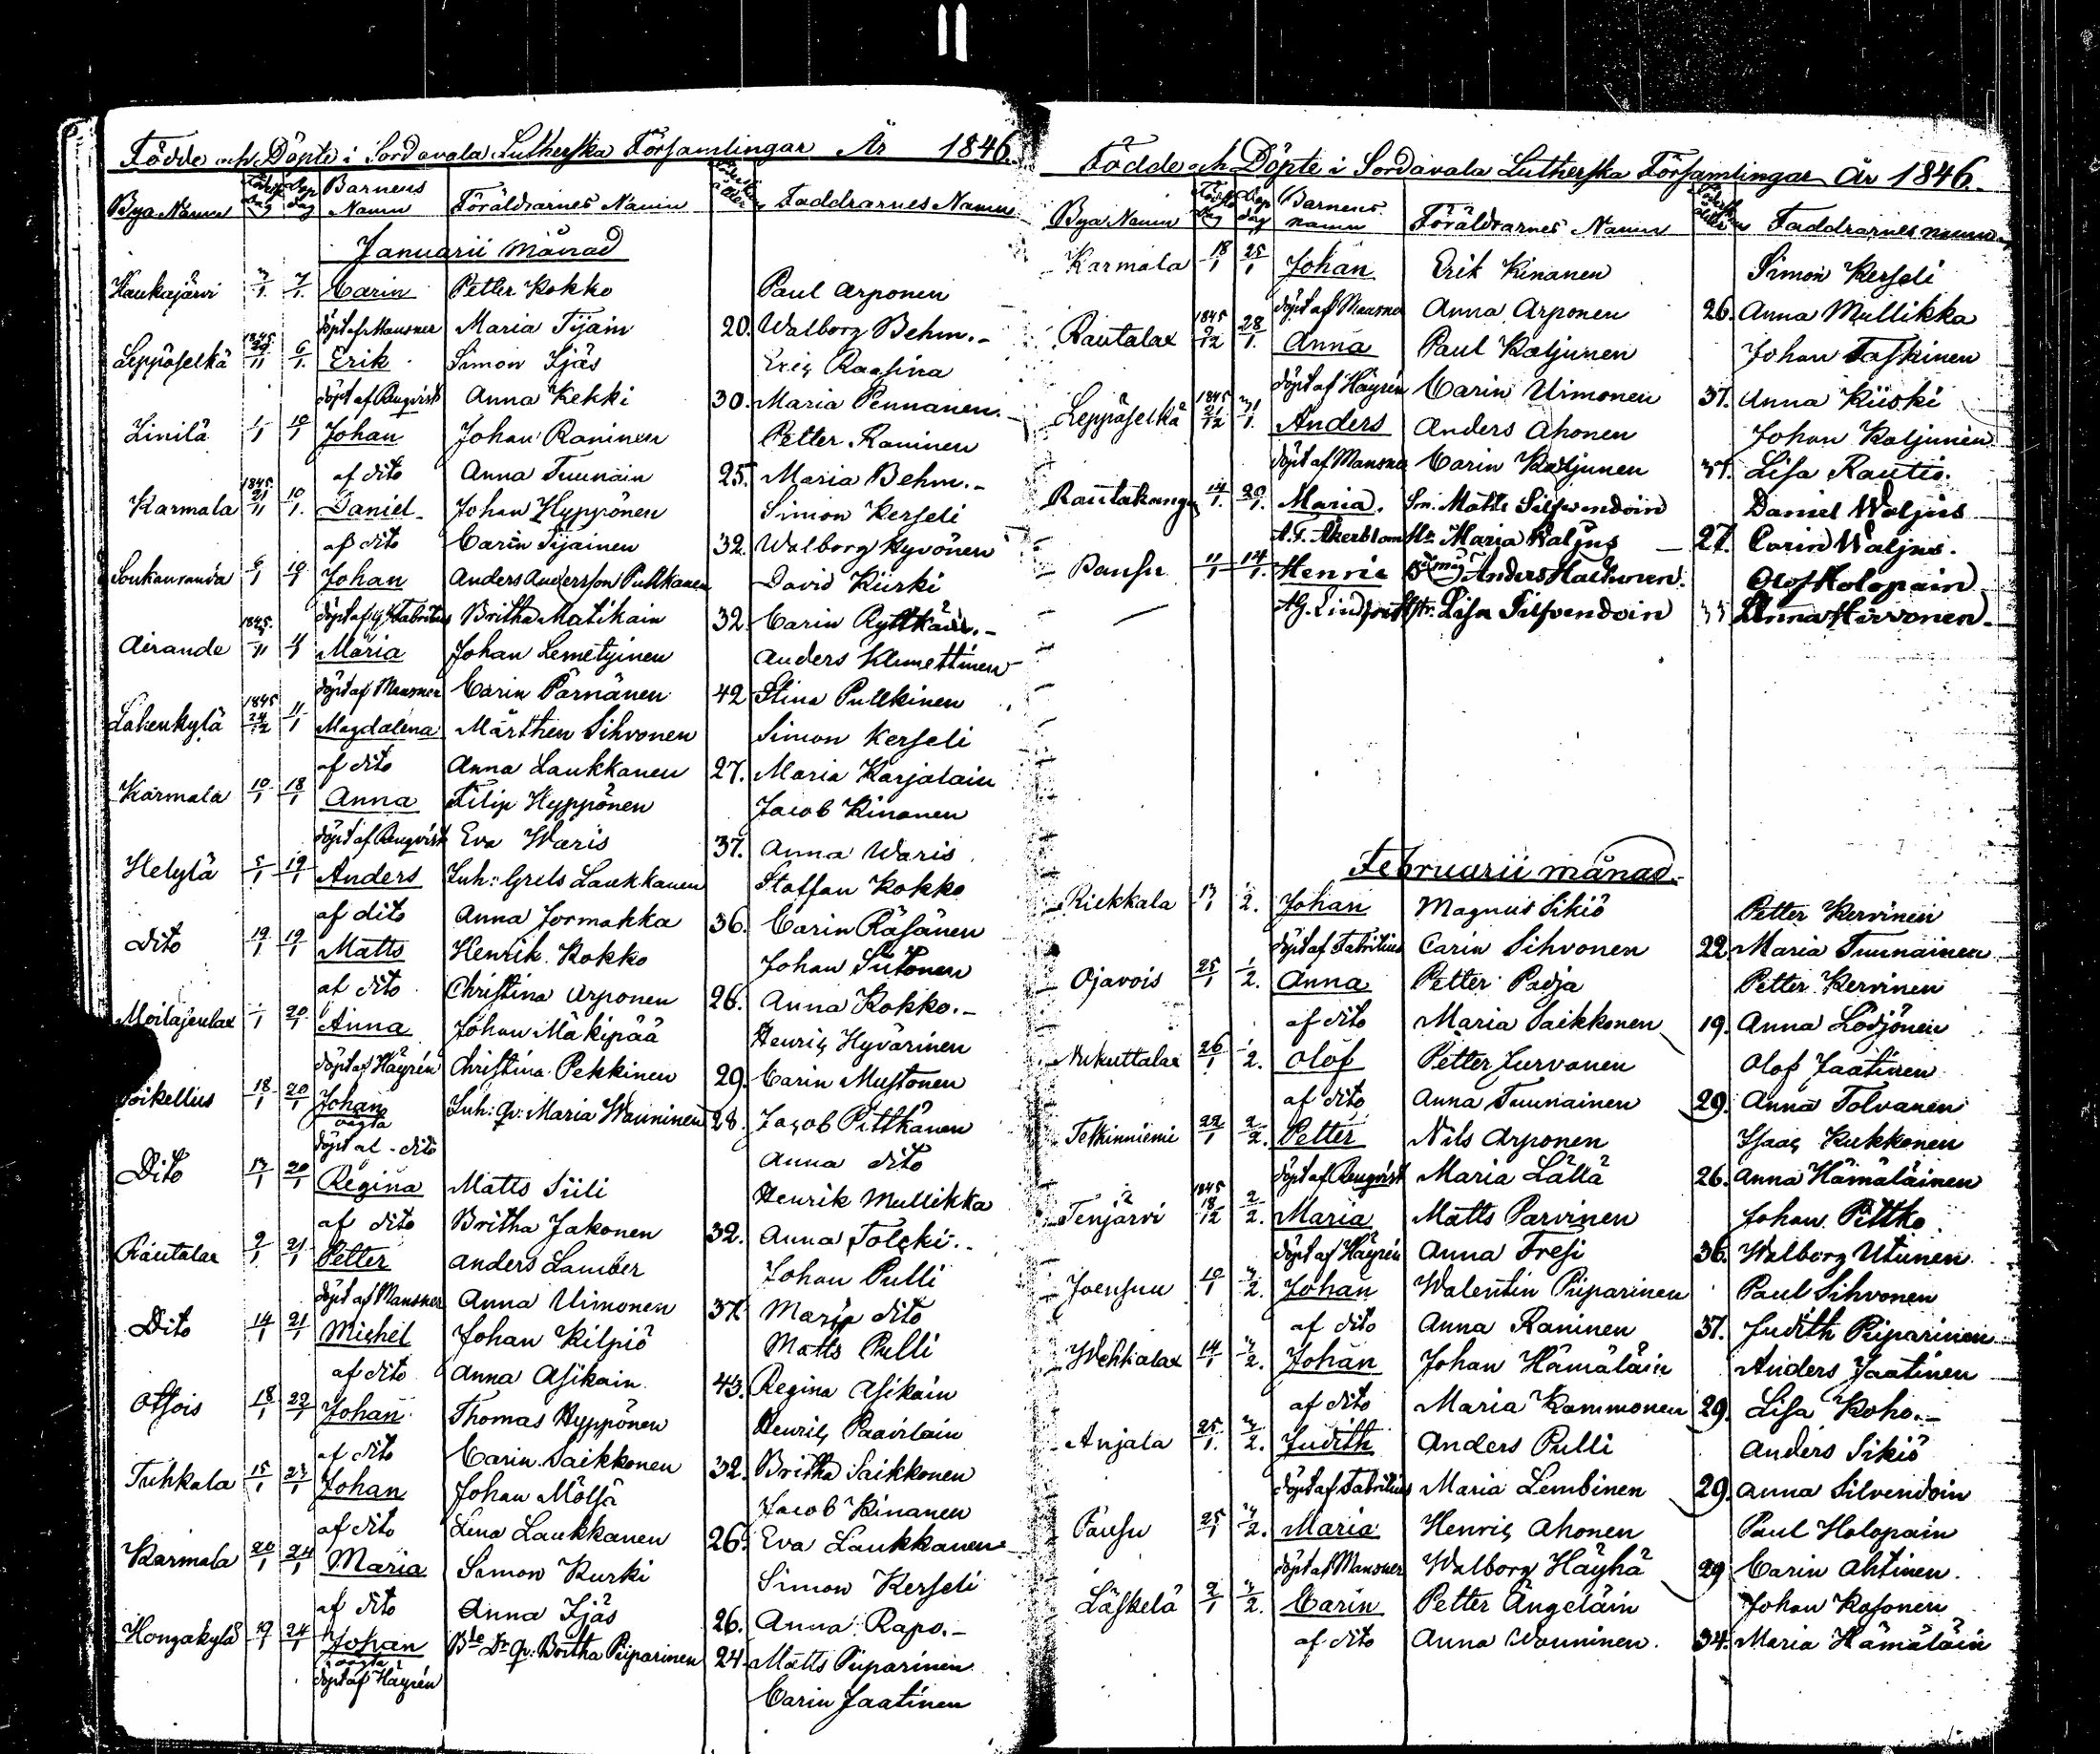 Födde och Döpte i Sordavala Lutherska Församlingar År 1846.
Bya Namn Födelse Dag Dop Dag Barnens Namn Föräldrarnes Namn Moderskans ålder Faddrarnes Namn
Januarii månad
Haukajärvi 3/1. 7/1. Carin Petter Kokko Paul Arponen
döpt af Mansner Maria Tijain 20. Walborg Behm.-
Leppäselkä 1845 29/11 6/1. Erik Simon Ijäs Eriç Raasina
döpt af Renqvist Anna Kekki 30. Maria Pennanen.
Linilä 1/1 10/1 Johan Johan Raninen Petter Raninen
af dito Anna Tuunain 25. Maria Behm.-
Karmala 1845. 21/11 10/1. Daniel Johan Hyppönen Simon Kerseli
af dito Carin Tijainen 32. Walborg Hyvönen
Soukanranda 6/1 10/1 Johan Anders Andersson Pulkkanen David Kiiski
döpt af Fabritius Britha Matikain 32. Carin Ryttkäin.-
Airande 1845. /11 /1 Maria Johan Lemetyinen Anders Klemettinen
döpt af Mansner Carin Pärnänen 42 Stina Pullkinen
Lahenkylä 1845 24/12 11/1 Magdalena Mårthen Sihvonen Simon Kerseli
af dito Anna Laukkanen 27. Maria Karjalain
Karmala 10/1 18/1 Anna Filip Hyppönen Jacob Kinanen
döpt af Renqvist Eva Waris 37. Anna Waris
Helylä 5/1 19/1 Anders Inh: Grels Laukkanen Staffan Kokko
af dito Anna Jormakka 36. Carin Räsänen
dito 19/1 19/1 Matts Henrik Kokko Johan Sutonen
af dito Christina Arponen 26. Anna Kokko.-
Moilajenlax 1/1 20/1 Anna Johan Mäkipää Henriç Hyvärinen
döpt af Häyrén Christina Pekkinen 29. Carin Mustonen
oikellus 18/1 20/1 Johan Inh: Qv: Maria Wanninen 28. Jacob Pittkänen
oägta
döpt af dito Anna dito
Dito 13/1 20/1 Regina Matts Siili Henrik Mullikka
af dito Britha Jakonen 32. Anna Tolcki.-
Rautalax 2/1 21/1 Petter Anders Lamber Johan Pulli
döpt af Mansner Anna Uimonen 37. Maria dito
Dito 14/1 21/1 Michel Johan Kilpiö Matts Pulli
af dito Anna Asikain 43. Regina Asikain
Otsois 18/1 22/1 Johan Thomas Hyppönen Henriç Paavilain
af dito Carin Saikkonen 32. Britha Saikkonen
Tuhkala 15/1 23/1 Johan Johan Mölsä Jacob Kinanen
af dito Lena Laukkanen 26. Eva Laukkanen
Karmala 20/1 24/1 Maria Simon Kurki Simon Kerseli
af dito Anna Ijäs 26. Anna Rapo.-
Hongakylä 19/1 24/1 Johan Bde Dr Qv: Britha Piiparinen 24. Matts Piiparinen
oägta
döpt af Häyrén Carin Jaatinen
Födde och Döpte i Sordavala Lutherska Församlingar År 1846.
Bya Namn Födelse Dag Dop Dag Barnens namn Föräldrarnes Namn Moderskans ålder Faddrarnes namn
Karmala 18/1 25/1 Johan Erik Kinanen Simon Kerseli
döpt af Mansner Anna Arponen 26. Anna Mullikka
Rautalax 1845 /12 28/1. Anna Paul Kaljunen Johan Taskinen
döpt af Häyrén Carin Uimonen 37. Anna Kiiski
Leppäselkä 1845 21/12 31/1. Anders Anders Ahonen Johan Kaljunen
döpt af Mansner Carin Kaljunen 37. Lisa Rautio.
Rautakangas 14/1. 20/1. Maria. Sm. Matts Silfvendoin Daniel Waljus
A. F. Åkerblom Hu Maria Waljus 27. Carin Waljus.
Pausu 11/1 14/1. Henric Anders Halkunen Olof Holopain
AG. Lindfors Hstr. Lisa Silfvendoin 33 Anna Hirvonen
Februarii månad.
Riekkala 13/1 1/2. Johan Magnus Sikiö Petter Kervinen
döpt af Fabritius Carin Sihvonen 22. Maria Tuunainen
Ojavois 25/1 1/2. Anna Petter Padja Petter Kervinen
af dito Maria Saikkonen 19. Anna Lodjönen
Nukuttalax 26/1 1/2. Olof Petter Jurvanen Olof Jaatinen
af dito Anna Tuunainen 29. Anna Tolvanen
Tetkinniemi 22/1 2/2. Petter Nils Arponen Isaaç Kukkonen
döpt af Renqvist Maria Lällä 26. Anna Hämäläinen
Tenjärvi 1845 18/12 2/2. Maria Matts Parvinen Johan Pittko
döpt af Häyrén Anna Tresi 36. Walborg Utunen
Joensuu 10/1 3/2. Johan Walentin Piiparinen Paul Sihvonen
af dito Anna Raninen 37. Judith Piiparinen
Wehkalax 14/1 3/2. Johan Johan Hämäläin Anders Jaatinen
af dito Maria Kammonen 29. Lisa Koho.-
Anjala 25/1. 3/2. Judith Anders Pulli Anders Sikiö
döpt af Fabritius Maria Lembinen 29. Anna Silvendoin
Pausu 25/1 3/2. Maria Henriç Ahonen Paul Holopain
döpt af Mansner Walborg Häyhä 29 Carin Ahtinen.
Läskelä 2/1 3/2. Carin Petter Ängeläin Johan Kosonen
af dito Anna Wanninen. 34. Maria Hämäläin